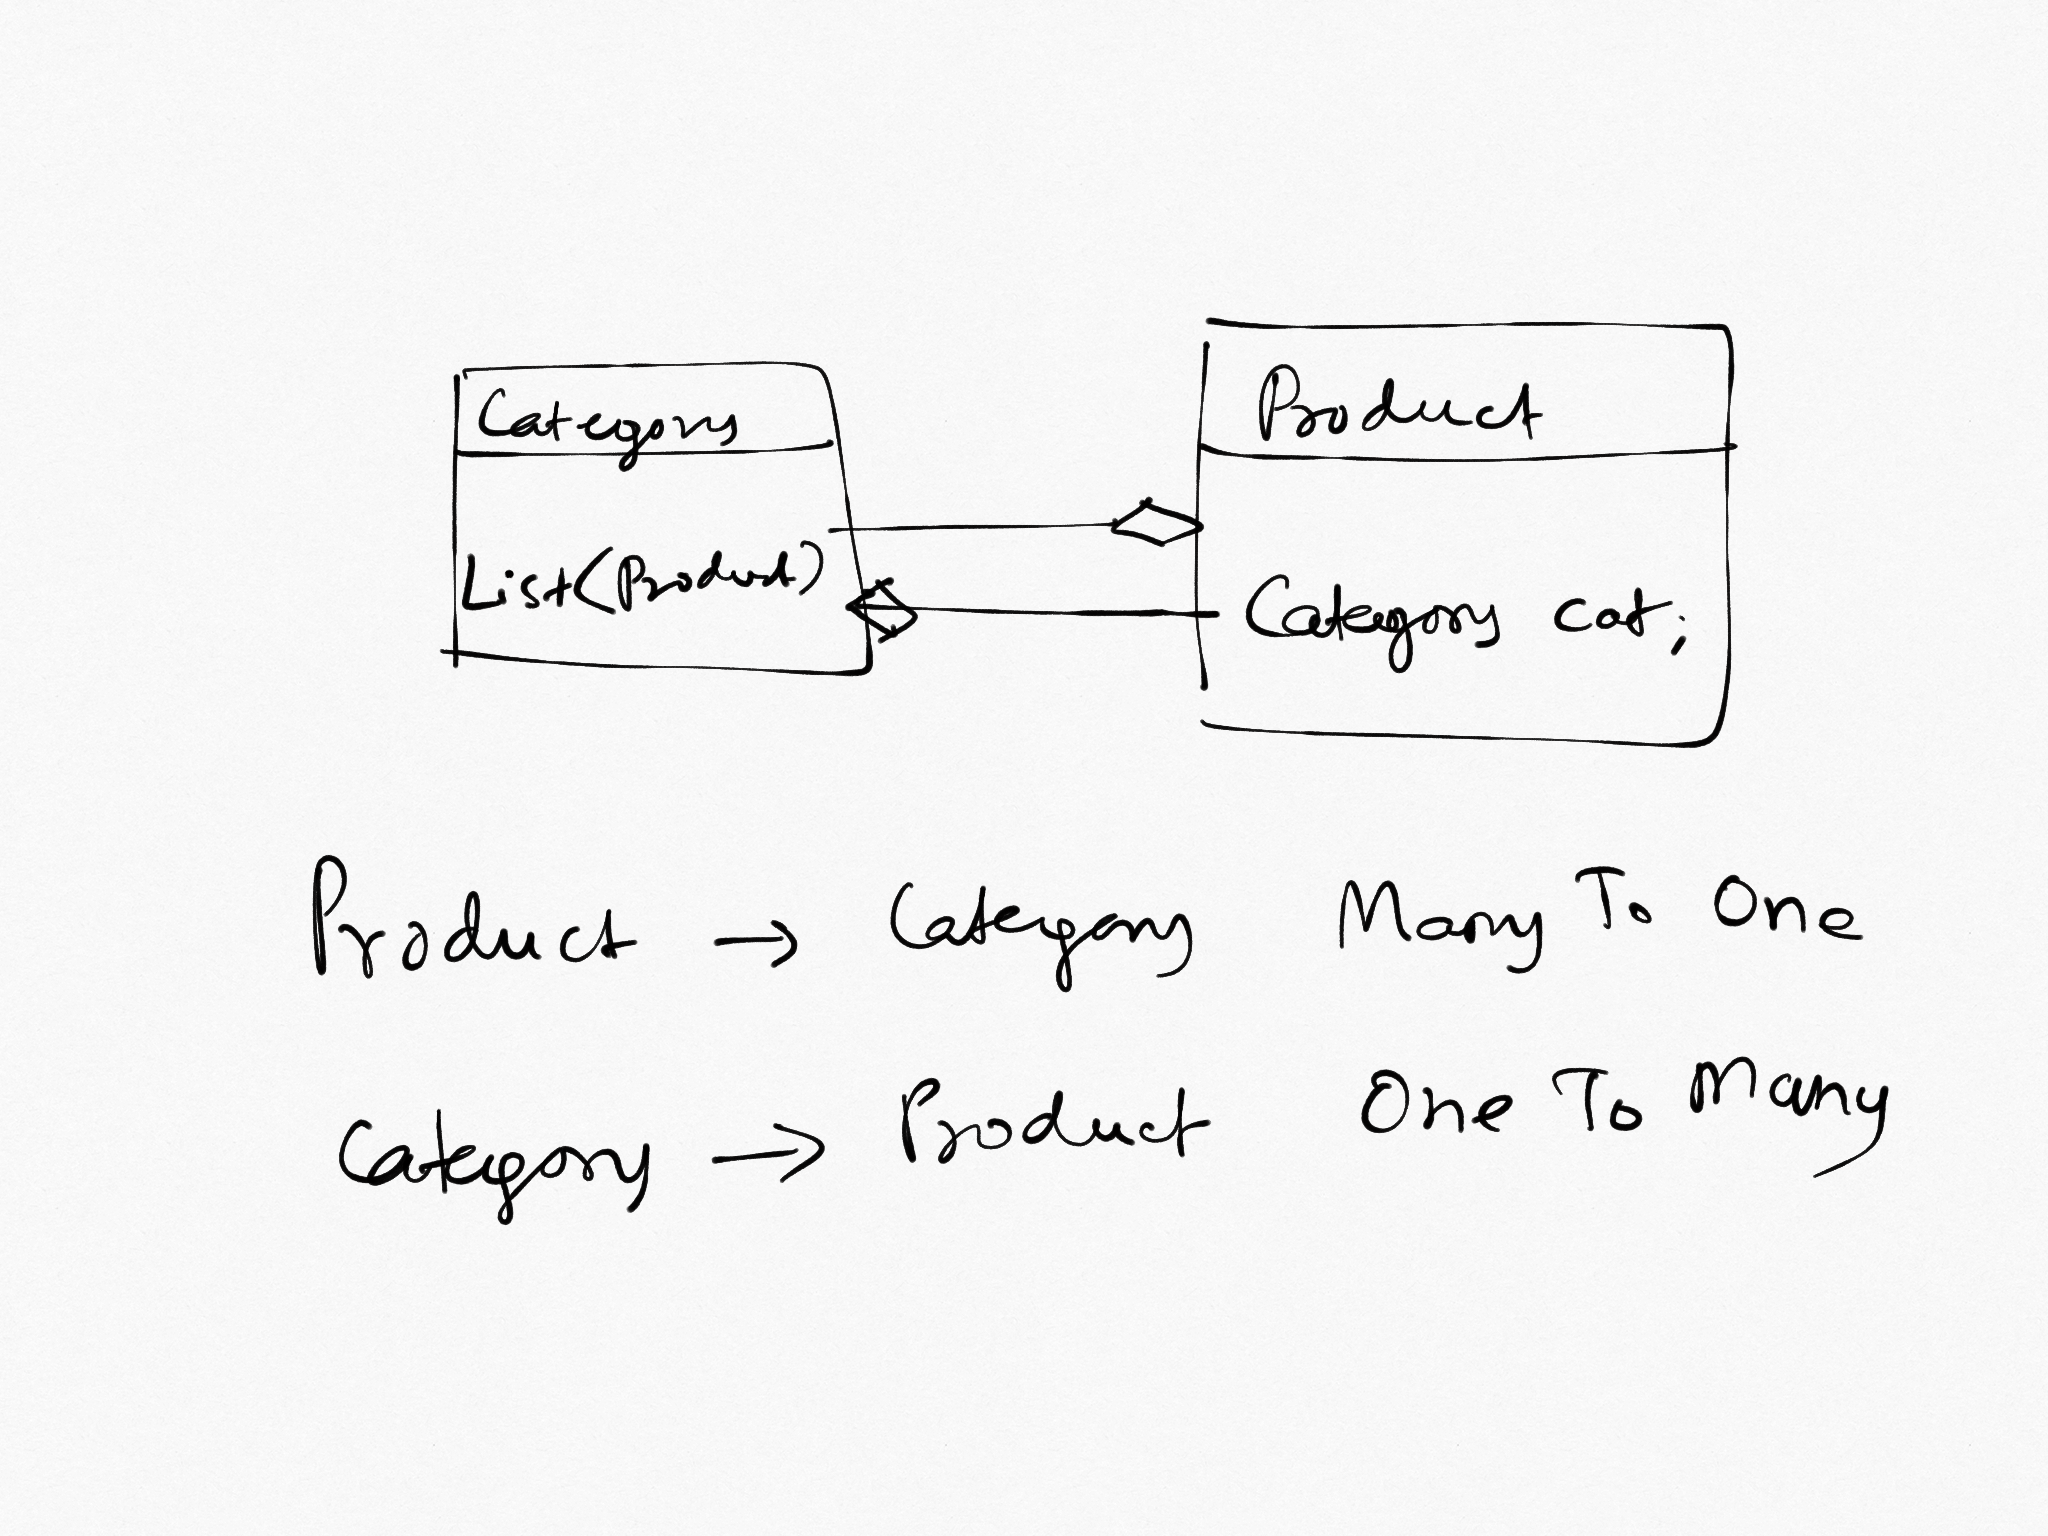 Category
List(Product)
Product
Category cat;
Product → Category Many To One
Category → Product One To Many